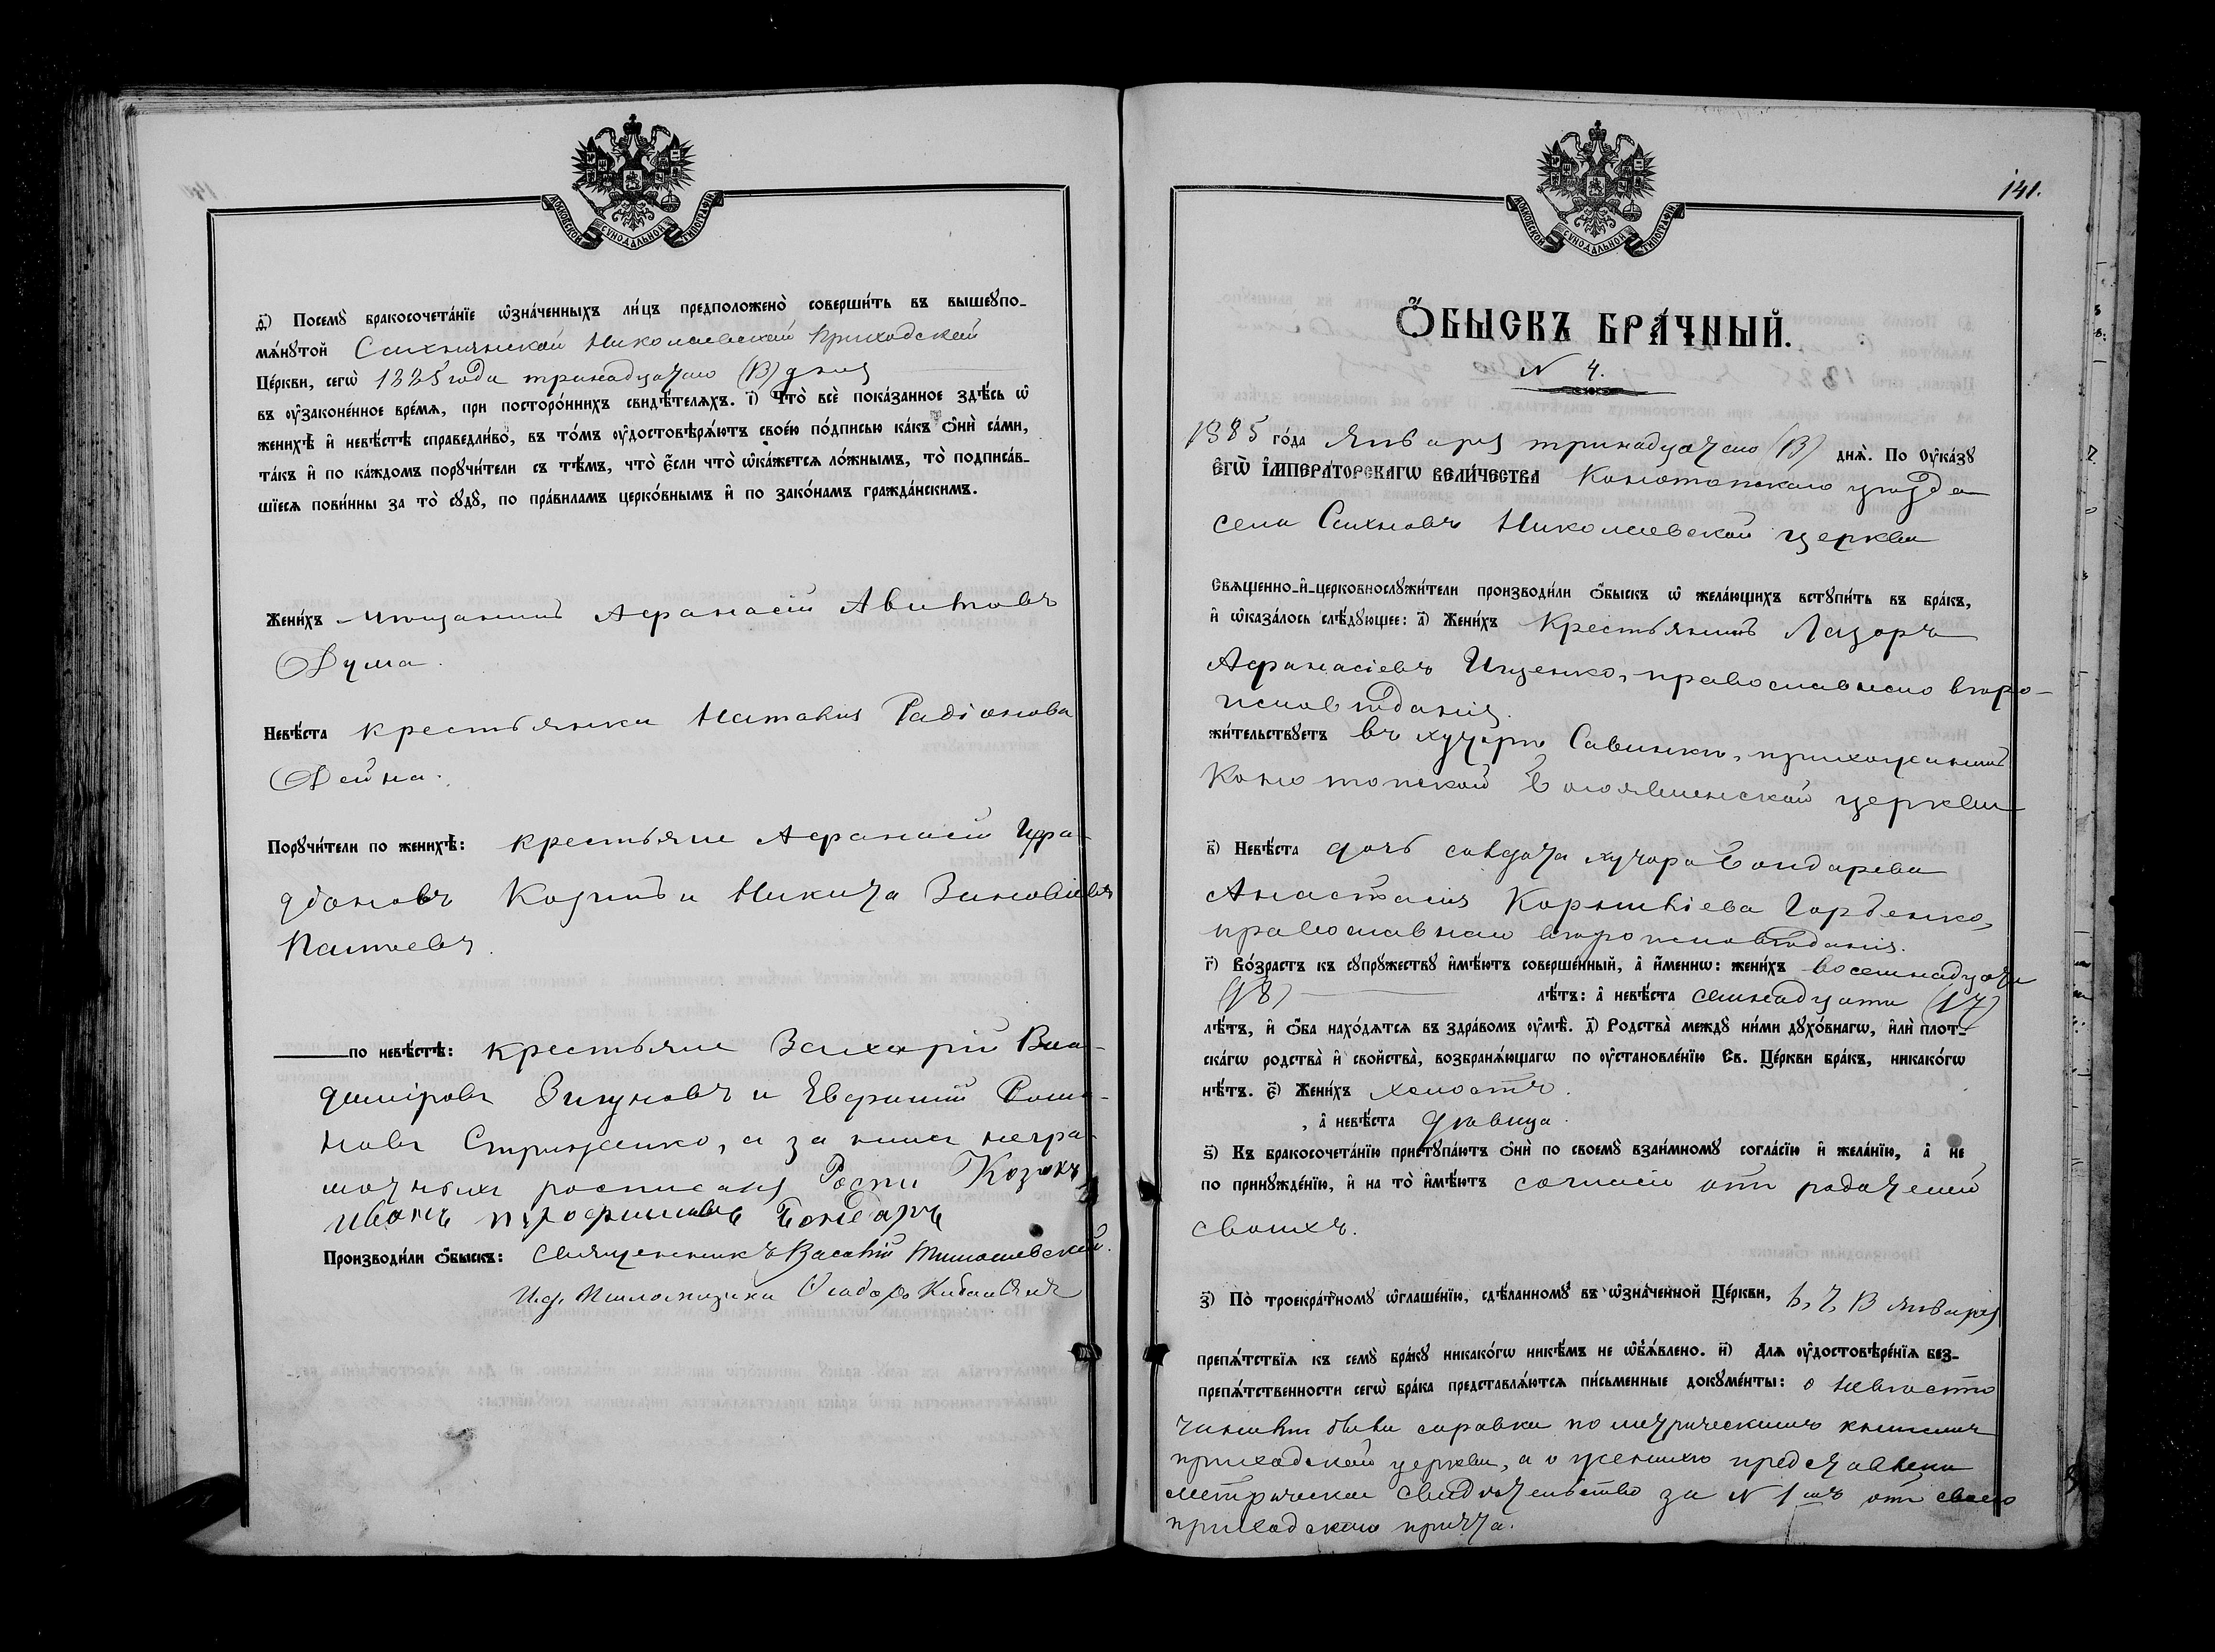 МОСКОВСКОЙ СѴНОДАЛЬНОЙ ТИПОГРАФІИ
д҃) Посемꙋ̀ бракосочета́нїе ѡ҆зна́ченныхъ ли́цъ предположено̀ соверши́ть въ вышеꙋпо-
мѧ́нꙋтой Сахновской Николаевской приходской
Це́ркви, сегѡ̀ 1885 года тринадцатаго (13) дня
въ ᲂу҆законе́нное вре́мѧ, при посторо́ннихъ свидѣ́телѧхъ. і҃) Что̀ всѐ пока́занное здѣ́сь ѡ҆
женихѣ̀ и҆ невѣ́стѣ справедли́во, въ то́мъ ᲂу҆достовѣрѧ́ютъ свое́ю по́дписью ка́къ ѻ҆нѝ са́ми,
та́къ и҆ по ка́ждомъ поручи́тели съ тѣ́мъ, что̀ є҆́сли что̀ ѡ҆ка́жетсѧ ло́жнымъ, то̀ подписа́в-
шїесѧ пови́нны за то̀ сꙋдꙋ̀, по пра́виламъ церко́внымъ и҆ по зако́намъ гражда́нскимъ.
Жени́хъ мѣщанинъ Афанасій Авитовъ
Дума.
Невѣ́ста крестьянка Наталія Радіонова
Дейна.
Порꙋчи́тели по женихѣ̀: крестьяне Афанасій
Козинъ и Никита Зиновіевъ
по невѣ́стѣ: крестьяне Захарій Вла-
диміровъ и Евфимій Рома-
новъ Стриженко, а за нихъ негра-
мотныхъ росписался Козакъ
иванъ трофимовъ бондарь
Производи́ли ѻ҆́быскъ: Священникъ Василій
И.д. Псаломщика
141.
МОСКОВСКОЙ СѴНОДАЛЬНОЙ ТИПОГРАФІИ
Ѻ҆́БЫСКЪ БРА́ЧНЫЙ.
N 4.
1885 го́да Января тринадцатаго (13) днѧ̀. По ᲂу҆ка́зꙋ
Є҆ГѠ̀ И҆МПЕРА́ТОРСКАГѠ ВЕЛИ́ЧЕСТВА Конотопскаго уѣзда
села Сахновъ Николаевской церкви
Свѧще́нно-и҆-церковнослꙋжи́тели производи́ли ѻ҆́быскъ ѡ҆ жела́ющихъ встꙋпи́ть въ бра́къ,
и҆ ѡ҆каза́лось слѣ́дꙋющее: а҃) Жени́хъ Крестьянинъ Лазорь
Афанасіевъ Ищенко, православнаго вѣро-
исповѣданія.
жи́тельствꙋетъ въ хуторѣ Савинки, прихожанинъ
Конотопской Богоявленской церкви
в҃) Невѣ́ста дочь солдата хутора Бондарева
Анастасія Корниліева Горбенко,
православнаго вѣроисповѣданія.
г҃) Во́зрастъ къ сꙋпрꙋ́жествꙋ и҆мѣ́ютъ соверше́нный, а҆ и҆́менно: жени́хъ восемнадцати
(18) лѣ́тъ: а҆ невѣ́ста семнадцати (17)
лѣ́тъ, и҆ ѻ҆́ба нахо́дѧтсѧ въ здра́вомъ ᲂу҆мѣ̀. д҃) Родства̀ междꙋ̀ ни́ми дꙋхо́внагѡ, и҆лѝ плот-
ска́гѡ родства̀ и҆ сво́йства, возбранѧ́ющагѡ по ᲂу҆становле́нїю Св. Це́ркви бра́къ, никако́гѡ
нѣ́тъ. є҃) Жени́хъ холостъ.
, а҆ невѣ́ста дѣвица.
ѕ҃) Къ бракосочета́нїю пристꙋпа́ютъ ѻ҆нѝ по своемꙋ̀ взаи́мномꙋ согла́сїю и҆ жела́нїю, а҆ не
по принꙋжде́нїю, и҆ на то̀ и҆мѣ́ютъ согласіе отъ родителей
своихъ.
з҃) По̀ троекра́тномꙋ ѡ҆глаше́нїю, сдѣ́ланномꙋ въ ѡ҆зна́ченной Це́ркви, 6, 7, 13 января
препѧ́тствїѧ къ семꙋ̀ бра́кꙋ никако́гѡ никѣ́мъ не ѡ҆б̾ѧ́влено. и҃) Длѧ ᲂу҆достовѣре́нїѧ без-
препѧ́тственности сегѡ̀ бра́ка представлѧ́ютсѧ пи́сьменные докꙋме́нты: о невѣстѣ
чинили были справки по метрическимъ книгамъ
приходской церкви, а о женихѣ представлено
метрическое свидѣтельство за N 1мъ отъ своего
приходскаго причта.